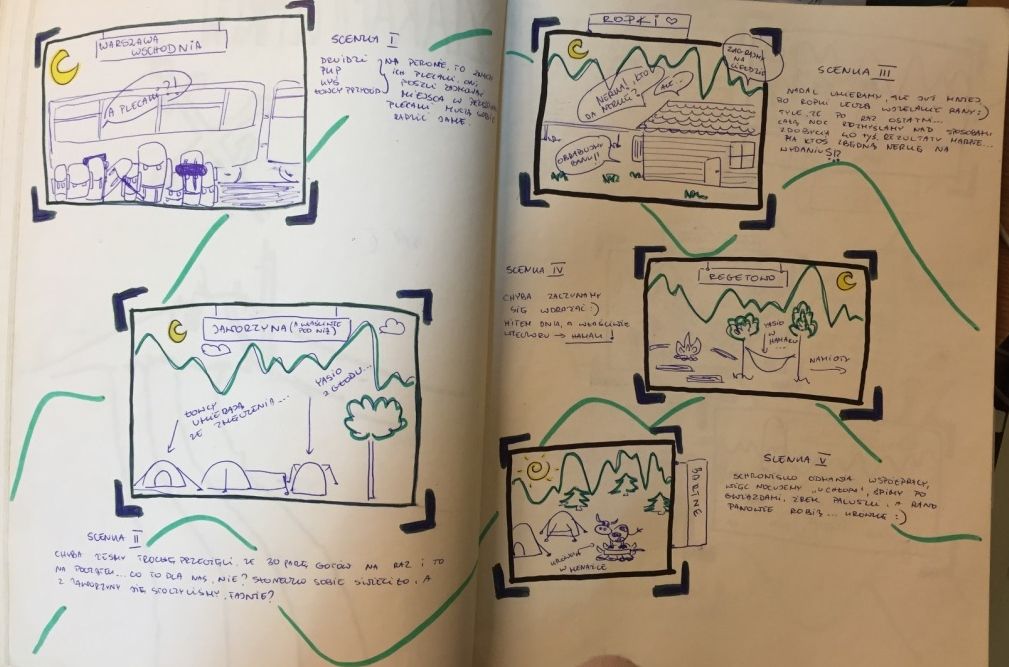 WARSZAWA
WSCHODNIA
A PLECAKI?!
SCENKA I
DRUIDZI
PHP
ŁOWCY PRZYGÓD
NA PERONIE, TO ZNACZY
ICH PLECAKI, ONI
POSZLI ZAJMOWAĆ
MIEJSCA W PRZEDZIALE
PLECAKI MUSZĄ SOBIE
RADZIĆ SAME.
JAWORZYNA (A WŁAŚCIWIE
POD NIĄ)
ŁOWCY
UMIERAJĄ
ZE ZMĘCZENIA...
YASIO
Z GŁODU...
SCENKA II
CHYBA ŻEŚMY TROCHĘ PRZEGIĘLI, ŻE 30 PARĘ GOTÓW NA RAZ I TO
NA POCZĄTEK... CO TO DLA NAS, NIE? SŁONECZKO SOBIE ŚWIECIŁO, A
Z JAWORZYNY SIĘ STOCZYLIŚMY, FAJNIE?
ROPKI
ZAGRAJMY
NA
GIEŁDZIE
NERKA! KTO
DA NERKĘ?
ALE...
OBRABUJMY
BANK!!
SCENKA III
NADAL UMIERAMY, ALE JUŻ MNIEJ
BO ROPKI LECZĄ WSZELAKIE RANY :)
TYLE, ŻE PO RAZ OSTATNI...
CAŁĄ NOC ROZMYŚLAMY NAD SPOSOBAMI
ZDOBYCIA 40 TYŚ, REZULTATY MARNE...
MA KTOŚ ZBĘDNĄ NERKĘ NA
WYDANIU?!?
SCENKA IV
CHYBA ZACZYNAMY
SIĘ WDRAŻAĆ :)
HITEM DNIA, A WŁAŚCIWIE
WIECZORU → HAMAK!
REGETOWO
YASIO
W
HAMAKU
...
NAMIOTY
BARTNE
KRÓWKA
W MENAŻCE
SCENKA V
SCHRONISKO ODMAWIA WSPÓŁPRACY,
WIĘC NOCUJEMY ŚPIMY POD
GWIAZDAMI, ŻREM PALUSZKI, A RANO
PANOWIE ROBIĄ... KRÓWKĘ :)